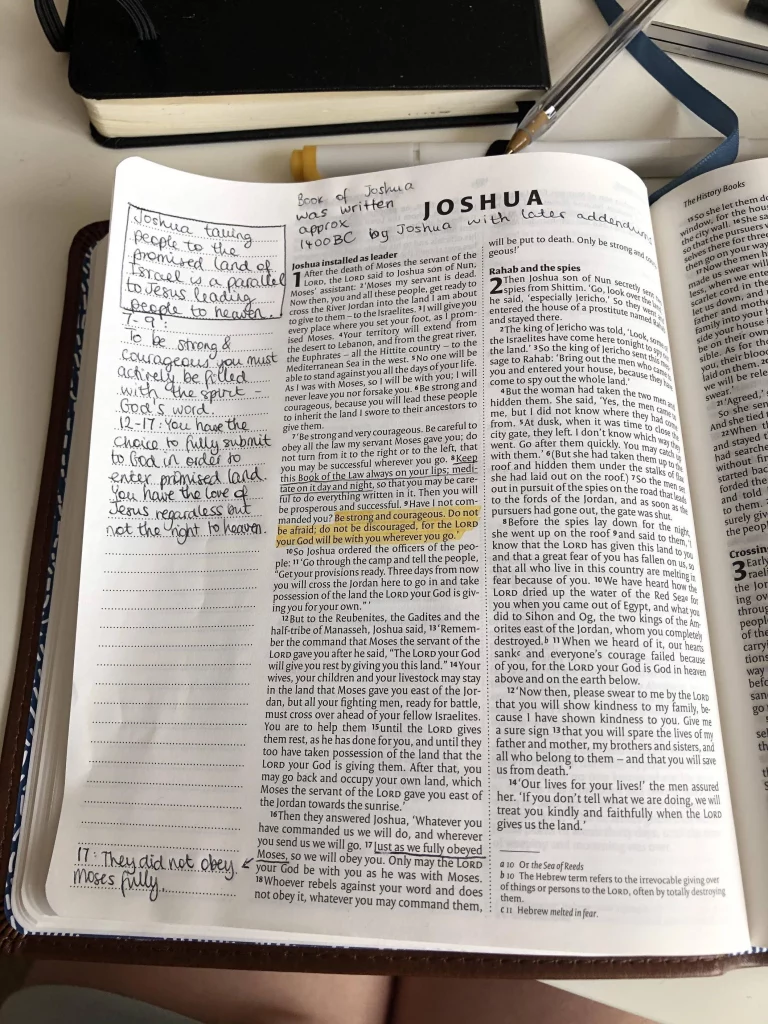 Book of Joshua
was written
approx
1400BC by Joshua with later addendums
JOSHUA
Joshua taking
people to the
promised land of
Israel is a parallel
to Jesus leading
people to heaven.
7-9:
To be strong &
courageous you must
actively be filled
with the spirit –
God's word.
12-17: You have the
choice to fully submit
to God in order to
enter promised land.
You have the love of
Jesus regardless but
not the right to heaven.
17: They did not obey
Moses fully.
Joshua installed as leader
1 After the death of Moses the servant of the
LORD, the LORD said to Joshua son of Nun,
Moses' assistant: 2 'Moses my servant is dead.
Now then, you and all these people, get ready to
cross the River Jordan into the land I am about
to give to them – to the Israelites. 3 I will give you
every place where you set your foot, as I prom-
ised Moses. 4 Your territory will extend from
the desert to Lebanon, and from the great river,
the Euphrates – all the Hittite country – to the
Mediterranean Sea in the west. 5 No one will be
able to stand against you all the days of your life.
As I was with Moses, so I will be with you; I will
never leave you nor forsake you. 6 Be strong and
courageous, because you will lead these people
to inherit the land I swore to their ancestors to
give them.
7 'Be strong and very courageous. Be careful to
obey all the law my servant Moses gave you; do
not turn from it to the right or to the left, that
you may be successful wherever you go. 8 Keep
this Book of the Law always on your lips; medi-
tate on it day and night, so that you may be care-
ful to do everything written in it. Then you will
be prosperous and successful. 9 Have I not com-
manded you? Be strong and courageous. Do not
be afraid; do not be discouraged, for the LORD
your God will be with you wherever you go.'
10 So Joshua ordered the officers of the peo-
ple: 11 'Go through the camp and tell the people,
"Get your provisions ready. Three days from now
you will cross the Jordan here to go in and take
possession of the land the LORD your God is giv-
ing you for your own." '
12 But to the Reubenites, the Gadites and the
half-tribe of Manasseh, Joshua said, 13 'Remem-
ber the command that Moses the servant of the
LORD gave you after he said, "The LORD your God
will give you rest by giving you this land." 14 Your
wives, your children and your livestock may stay
in the land that Moses gave you east of the Jor-
dan, but all your fighting men, ready for battle,
must cross over ahead of your fellow Israelites.
You are to help them 15 until the LORD gives
them rest, as he has done for you, and until they
too have taken possession of the land that the
LORD your God is giving them. After that, you
may go back and occupy your own land, which
Moses the servant of the LORD gave you east of
the Jordan towards the sunrise.'
16 Then they answered Joshua, 'Whatever you
have commanded us we will do, and wherever
you send us we will go. 17 Just as we fully obeyed
Moses, so we will obey you. Only may the LORD
your God be with you as he was with Moses.
18 Whoever rebels against your word and does
not obey it, whatever you may command them,
will be put to death. Only be strong and cou-
geous!'
Rahab and the spies
2 Then Joshua son of Nun secretly sent
spies from Shittim. 'Go, look over the
he said, 'especially Jericho.' So they went
entered the house of a prostitute named
and stayed there.
2 The king of Jericho was told, 'Look, some
the Israelites have come here tonight to spy
the land.' 3 So the king of Jericho sent this
sage to Rahab: 'Bring out the men who came
you and entered your house, because they
come to spy out the whole land.'
4 But the woman had taken the two men and
hidden them. She said, 'Yes, the men came
me, but I did not know where they had come
from. 5 At dusk, when it was time to close the
city gate, they left. I don't know which way they
went. Go after them quickly. You may catch up
with them.' 6 (But she had taken them up to the
roof and hidden them under the stalks of flax
she had laid out on the roof.) 7 So the men set
out in pursuit of the spies on the road that leads
to the fords of the Jordan, and as soon as the
pursuers had gone out, the gate was shut.
8 Before the spies lay down for the night,
she went up on the roof 9 and said to them, 'I
know that the LORD has given this land to you
and that a great fear of you has fallen on us, so
that all who live in this country are melting in
fear because of you. 10 We have heard how the
LORD dried up the water of the Red Sea a for
you when you came out of Egypt, and what you
did to Sihon and Og, the two kings of the Am-
orites east of the Jordan, whom you completely
destroyed. b 11 When we heard of it, our hearts
sank c and everyone's courage failed because
of you, for the LORD your God is God in heaven
above and on the earth below.
12 'Now then, please swear to me by the LORD
that you will show kindness to my family, be-
cause I have shown kindness to you. Give me
a sure sign 13 that you will spare the lives of my
father and mother, my brothers and sisters, and
all who belong to them – and that you will save
us from death.'
14 'Our lives for your lives!' the men assured
her. 'If you don't tell what we are doing, we will
treat you kindly and faithfully when the LORD
gives us the land.'
a 10 Or the Sea of Reeds
b 10 The Hebrew term refers to the irrevocable giving over
of things or persons to the LORD, often by totally destroying
them.
c 11 Hebrew melted in fear.
The History Books
15 So she let them do
window, for the hou
the city wall. 16 She sa
so that the pursuers w
selves there for three
then go on your way
17 Now the men h
made us swear will
less, when we enter
scarlet cord in the
let us down, and
father and mother
family into your h
side your house i
be on their own
sible. As for tho
you, their blood
laid on them. 20
we will be rele
swear.'
21 'Agreed,'
So she sen
And she tied
22 When th
and stayed t
had searche
without fin
started back
forded the
and told
surely give
the people
Crossin
3 Early